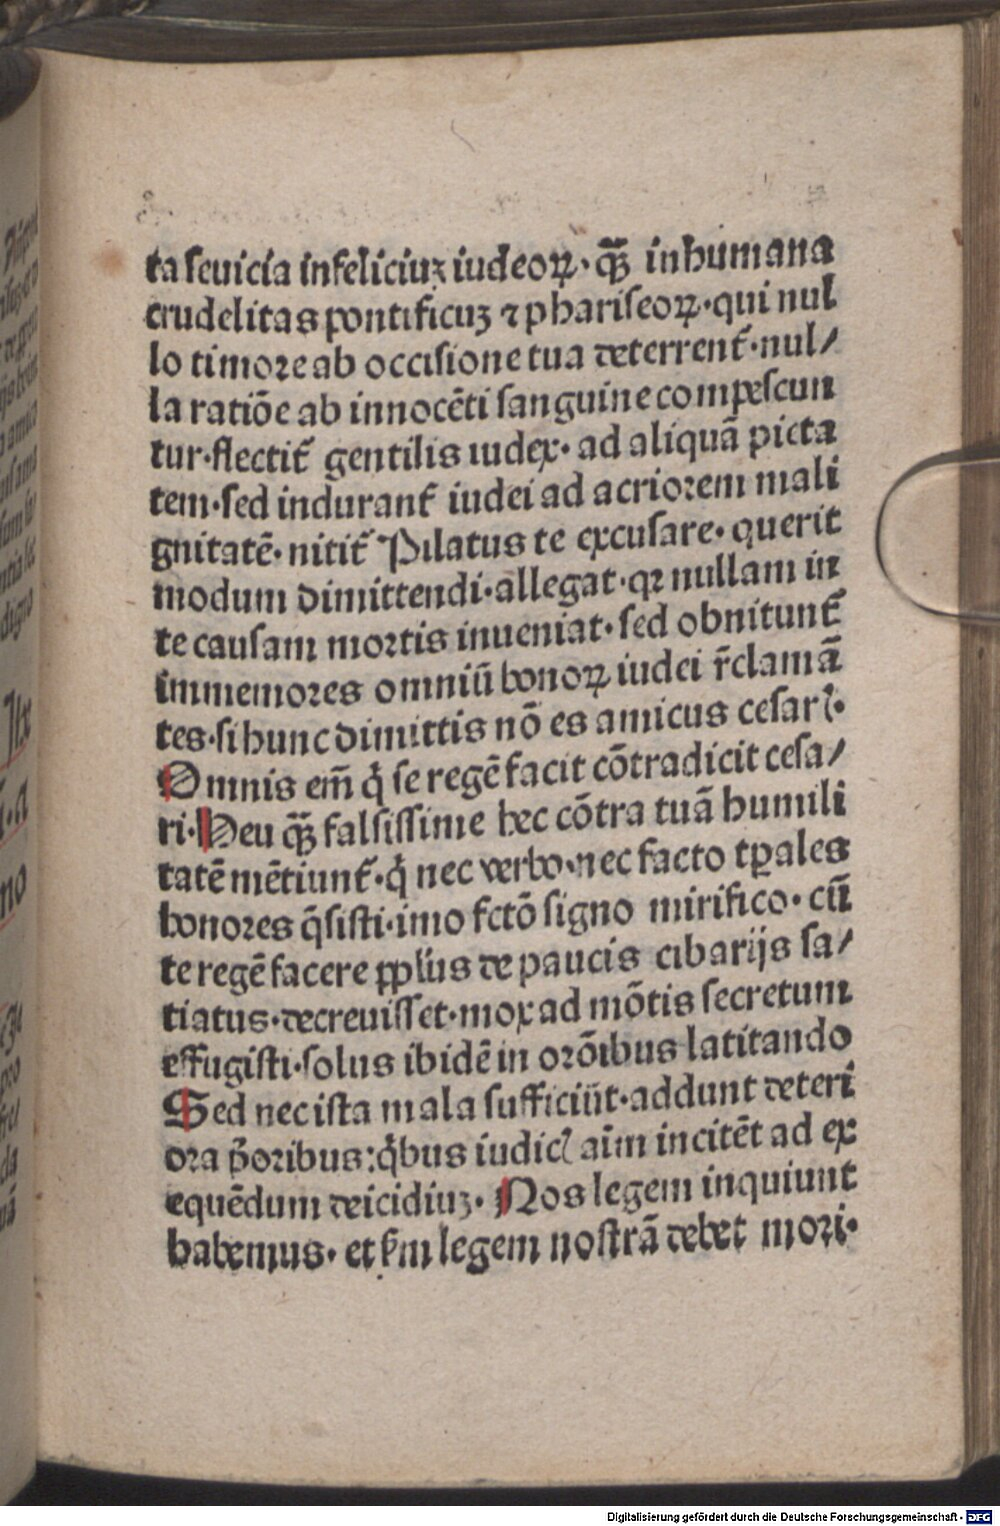 ta seuicia infeliciuꝫ iudeoꝝ· q̃ꝫ inhumana
crudelitas pontificuꝫ ⁊ phariseoꝝ·qui nul
lo timore ab occisione tua deterrent᷑·nul/
la ratiõe ab innocẽti sanguine compescun
tur·flectit᷑ gentilis iudex· ad aliquã pieta
tem·sed indurant᷑ iudei ad acriorem mali
gnitatẽ· nitit᷑ Pilatus te excusare· querit
modum dimittendi·allegat·qꝛ nullam in
te causam mortis inueniat· sed obnitunt᷑
immemores omniũ bonoꝝ iudei r̃clamã
tes·si hunc dimittis nõ es amicus cesari·
Omnis em̃ q̇ se regẽ facit cõtradicit cesa/
ri·Heu q̃ꝫ falsissime hec cõtra tuã humili
tatẽ mẽtiunt᷑·q̇ nec verbo·nec facto tꝑales
honores q̃sisti·imo fctõ signo mirifico· cũ
te regẽ facere pp̄lus de paucis cibarijs sa/
tiatus·decreuisset·mox ad mõtis secretum
effugisti·solus ibidẽ in orõibus latitando
Sed nec ista mala sufficiũt·addunt deteri
ora p̃oribus:q̇bus iudicꝭ aĩm incitẽt ad ex
equẽdum deicidiuꝫ· Nos legem inquiunt
habemus· et ẜm legem nostrã debet mori·
Digitalisierung gefördert durch die Deutsche Forschungsgemeinschaft - DFG